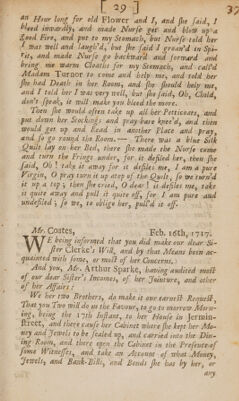 [ 29 ]
37
an Hour long for old Flower and I, and she said, I
bleed inwardly, and made Nurse get and blow up a
good Fire, and put to my Stomach, but Nurse told her
I was well and laugh'd, but she said I groan'd in Spi-
rit, and made Nurse go backward and forward and
bring me warm Cloaths for my Stomach, and call'd
Madam Turnor to come and help me, and told her
she had Death in her Room, and she should help me,
and I told her I was very well, but she said, Oh, Child,
don't speak, it will make you bleed the more.
Then she would often take up all her Petticoats, and
put down her Stockings and pray bare knee'd, and then
would get up and lead in another Place and pray,
and so go round the Room. — There was a blue Silk
Quilt lay on her Bed, there she made the Nurse come
and turn the Fringe under, for it defiled her, then she
said, Oh! take it away for it defiles me, I am a pure
Virgin, O pray turn it up atop of the Quilt, so we turn'd
it up a top; then she cried, O dear! it defiles me, take
it quite away and pull it quite off, for I am pure and
undefiled; so we, to oblige her, pull'd it off.
Mr. Coates, Feb. 16th, 1717.
WE being informed that you did make our dear Si-
ster Clerke's Will, and by that Means been ac-
quainted with some, or most of her Concerns,
And you, Mr. Arthur Sparke, having audited most
of our dear Sister's Incomes, of her Jointure, and other
of her Affairs:
We her two Brothers, do make it our earnest Request,
That you Two will do us the Favour, to go to morrow Morn-
ing, being the 17th Instant, to her House in Jermin-
street, and there cause her Cabinet where she kept her Mo-
ney and Jewels to be sealed up, and carried into the Din-
ing Room, and there open the Cabinet in the Presence of
some Witnesses, and take an Account of what Money,
Jewels, and Bank-Bills, and Bonds she has by her, or
any